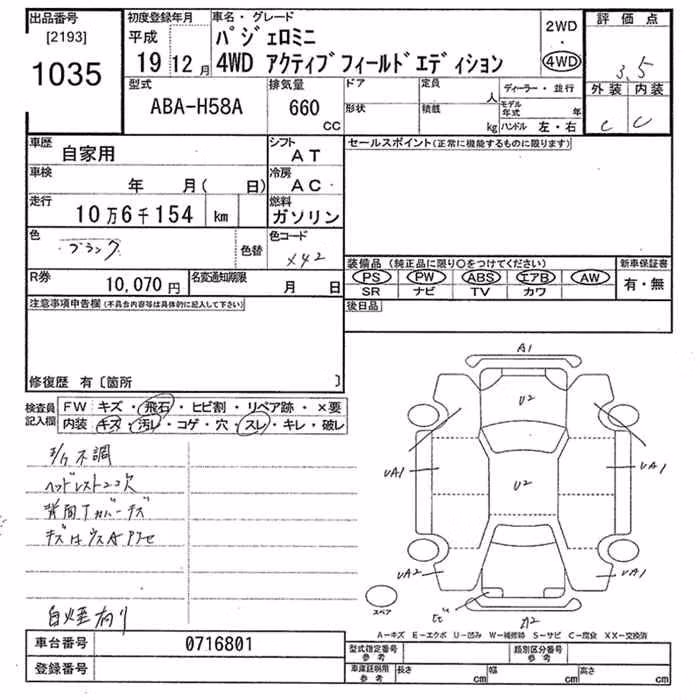 出品番号
[2193]
1035
初度登録年月
平成
19 12月
車名・グレード
パジェロミニ
4WD アクティブフィールドエディション
2WD
・
4WD
評価点
3.5
外装 内装
C C
型式
ABA-H58A
排気量
660
CC
ドア
形状
定員
人
積載
kg
ディーラー・並行
モデル年式 年
ハンドル 左・右
車歴
自家用
シフト
AT
車検
年 月( 日)
冷房
AC
走行
10万6千154 km
燃料
ガソリン
色
ブラック
色替
色コード
X42
R券
10,070円
名変通知期限
月 日
セールスポイント(正常に機能するものに限ります)
装備品(純正品に限り○をつけてください)
PS PW ABS エアB AW
SR ナビ TV カワ
新車保証書
有・無
後日品
注意事項申告欄(不具合内容等は具体的に記入して下さい)
修復歴 有〔箇所 〕
検査員
記入欄
FW キズ・飛石・ヒビ割・リペア跡・×要
内装 キズ・汚レ・コゲ・穴・スレ・キレ・破レ
不調
ヘッドレスト2コ欠
背面Tカバーキズ
白煙有り
A1
U2
UA1
U2
UA1
UA1
UA1
A2
スペア
A―キズ E―エクボ U―凹み W―補修跡 S―サビ C―腐食 XX―交換済
車台番号
0716801
登録番号
型式指定番号
参考
類別区分番号
参考
車庫証明用
参考
長さ cm
幅 cm
高さ cm